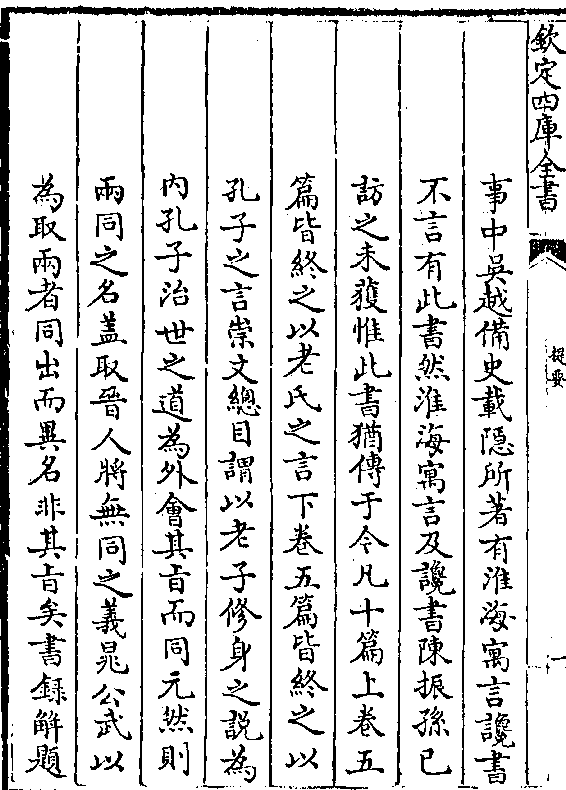 欽定四庫全書
提要
事中吳越備史載隱所著有淮海寓言讒書
不言有此書然淮海寓言及讒書陳振孫已
訪之未獲惟此書猶傳于今凡十篇上卷五
篇皆終之以老氏之言下卷五篇皆終之以
孔子之言崇文總目謂以老子修身之説為
内孔子治世之道為外會其旨而同元然則
兩同之名盖取晉人將無同之義晁公武以
為取兩者同出而異名非其旨矣書錄解題